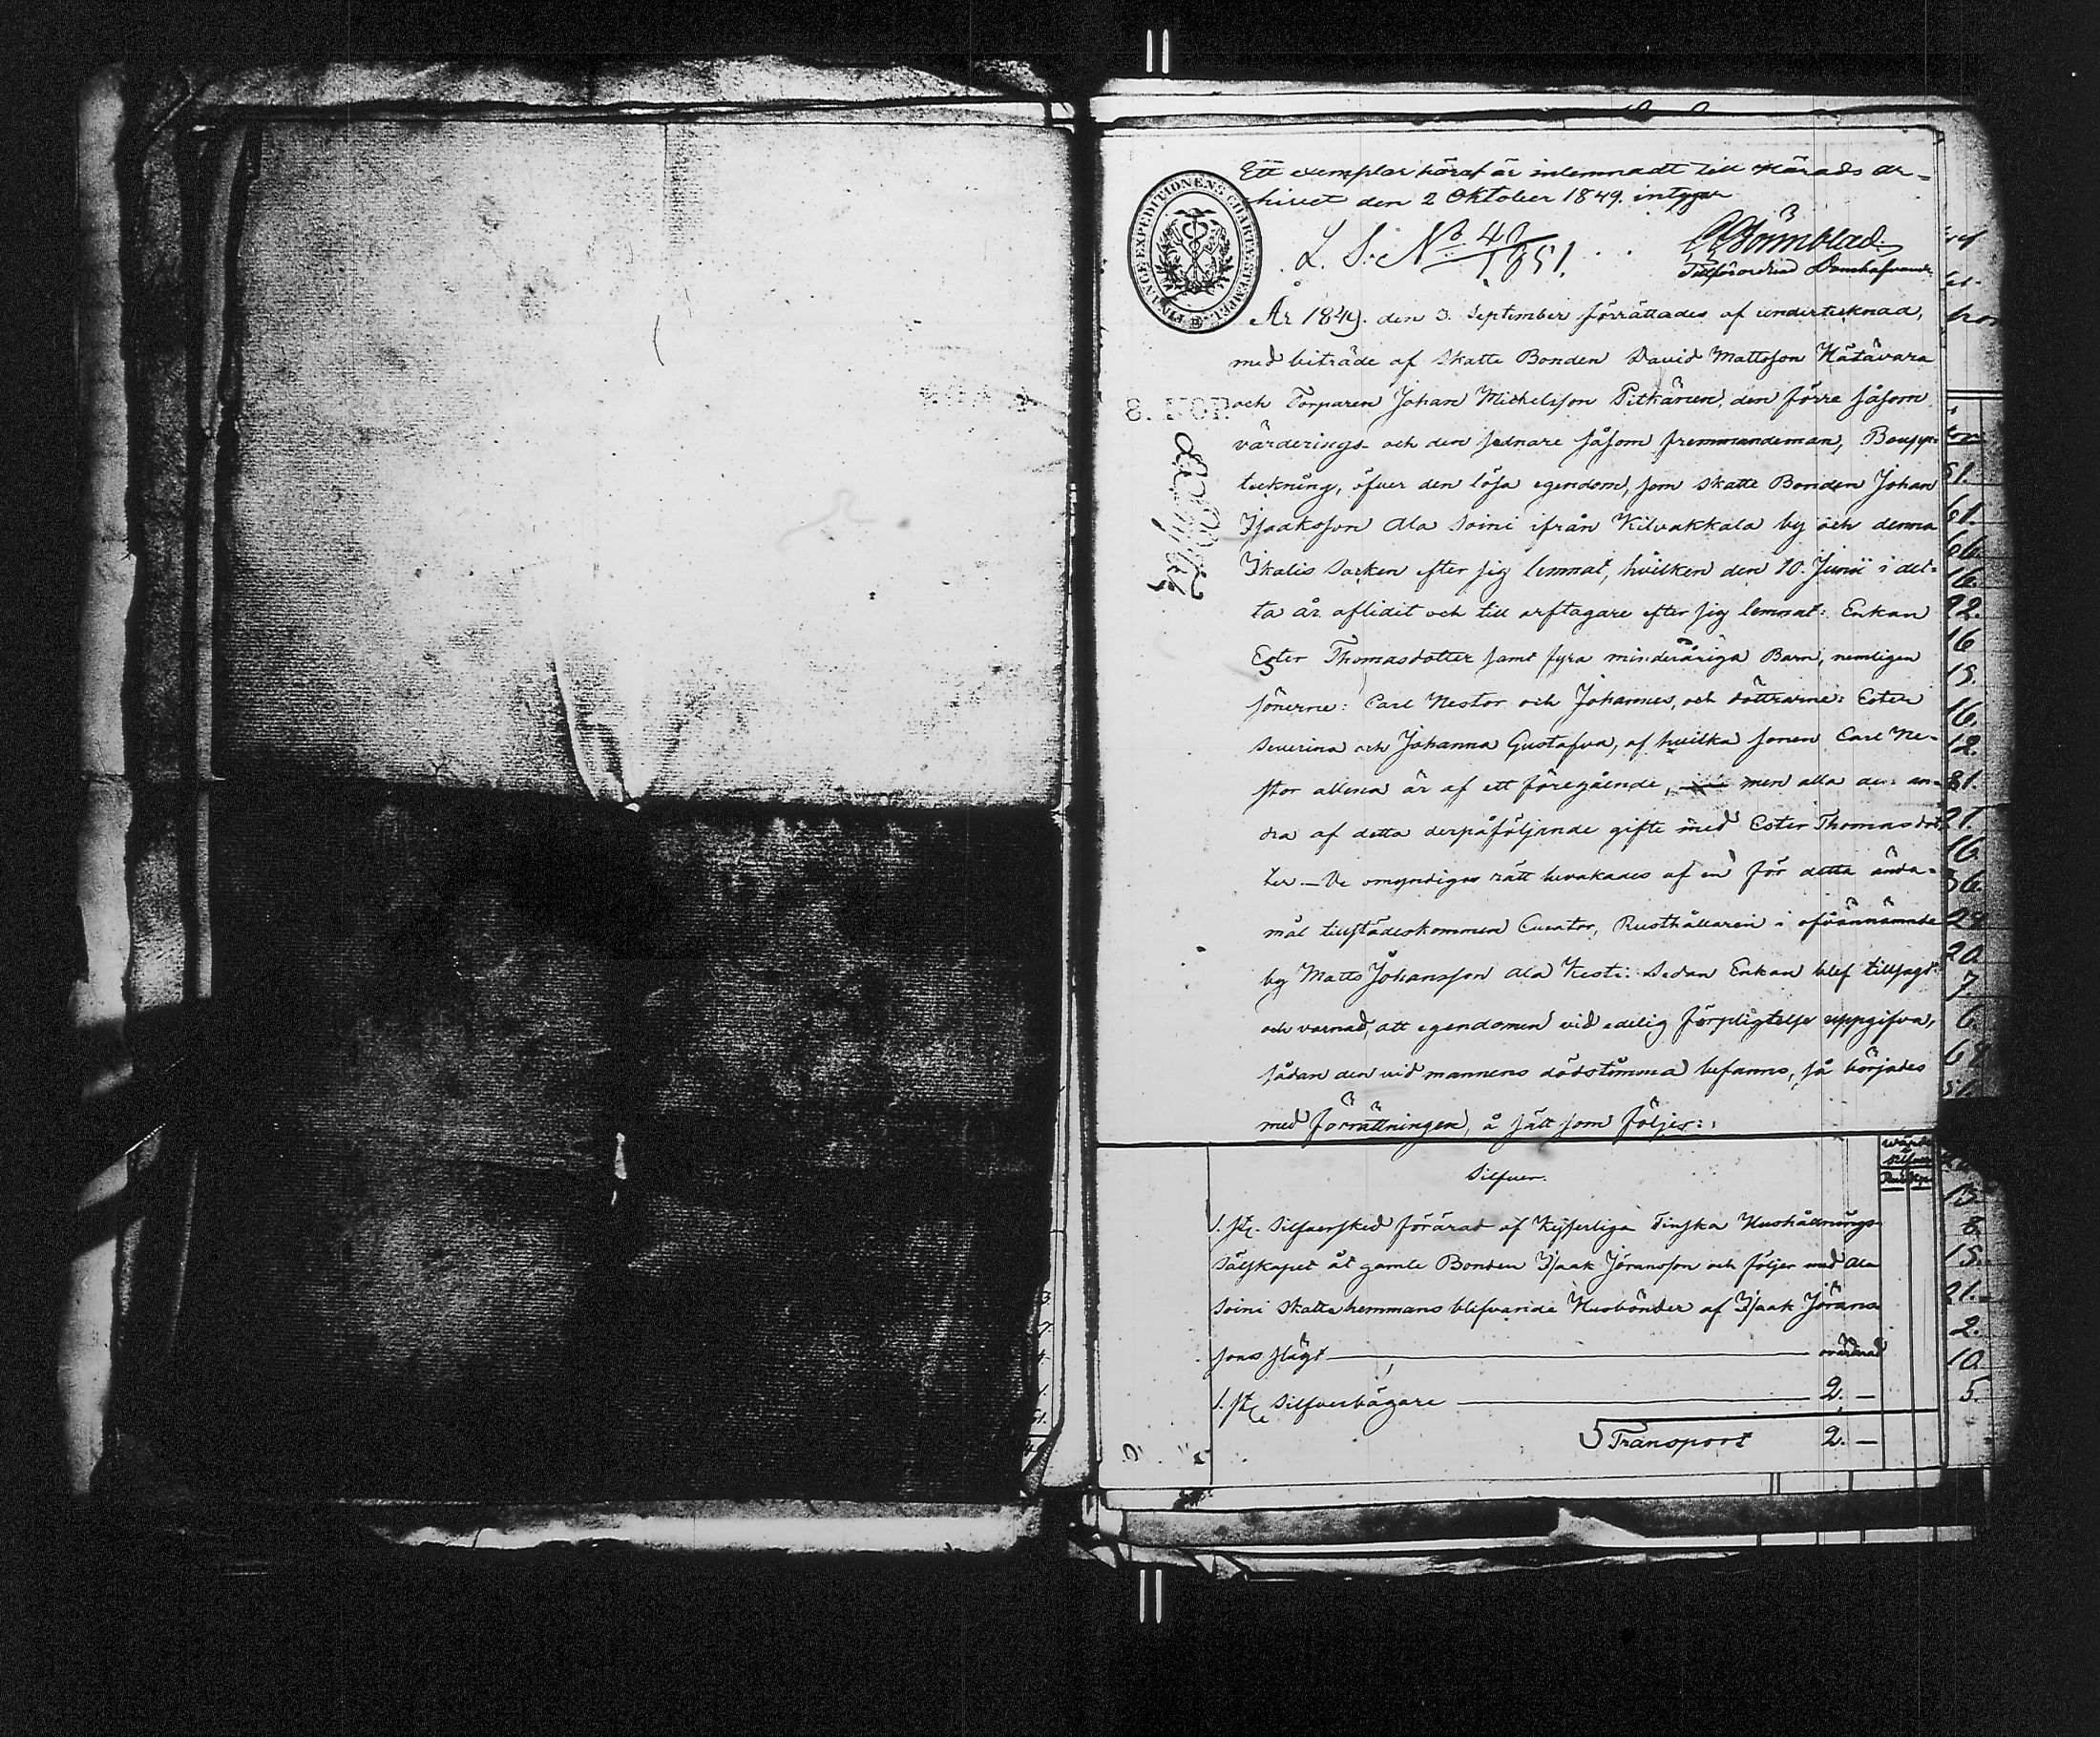 Ett exemplar häraf är inlemnadt till Härads ar-
chivet den 2 Oktober 1849. intygar
L. S. No 40/1851.
Tillförordnad Domhafvande
FINANCE EXPEDITIONENS CHARTÆ STEMPEL
År 1849. den 3. September förrättades af undertecknad,
med biträde af Skatte Bonden David Mattsson Hätävara
8. KOP.
och Torparen Johan Michelsson Pitkänen, den förre såsom
värderings- och den sednare såsom fremmandeman, Boupp-
teckning, öfver den lösa egendom, som skatte Bonden Johan
Isaaksson Ala Soini ifrån Kilvakkala by och denna
Ikalis Socken efter sig lemnat, hvilken den 10. Junii i det-
ta år aflidit och till arftagare efter sig lemnat: Enkan
Ester Thomasdotter samt fyra minderåriga Barn, nemligen
sönerne: Carl Nestor och Johannes, och döttrarne: Ester
Severina och Johanna Gustafva, af hvilka sonen Carl Ne-
stor allena är af ett föregående, men alla de an-
dra af detta derpåföljande gifte med Ester Thomasdot
ter. — De omyndigas rätt bevakades af en för detta ända-
mål tillstädeskommen Curator, Rusthållaren i ofvannämnde
by Matts Johansson Ala Kesti: Sedan Enkan blef tillsagd
och varnad, att egendomen vid edelig förpligtelse uppgifva,
sådan den vid mannens dödstimma befanns, så börjades
med förrättningen, å sätt som följer:
Silfver.
1. st. Silfversked förärad af Kejserliga Finska Hushållnings-
Sälskapet åt gamle Bonden Isaak Jöransson och följer med Ala
Soini Skatte hemmans blifvande Husbönder af Isaak Jörans
sons slägt — ovärderad
1. st. Silfverbägare — 2. —
Transport 2. —